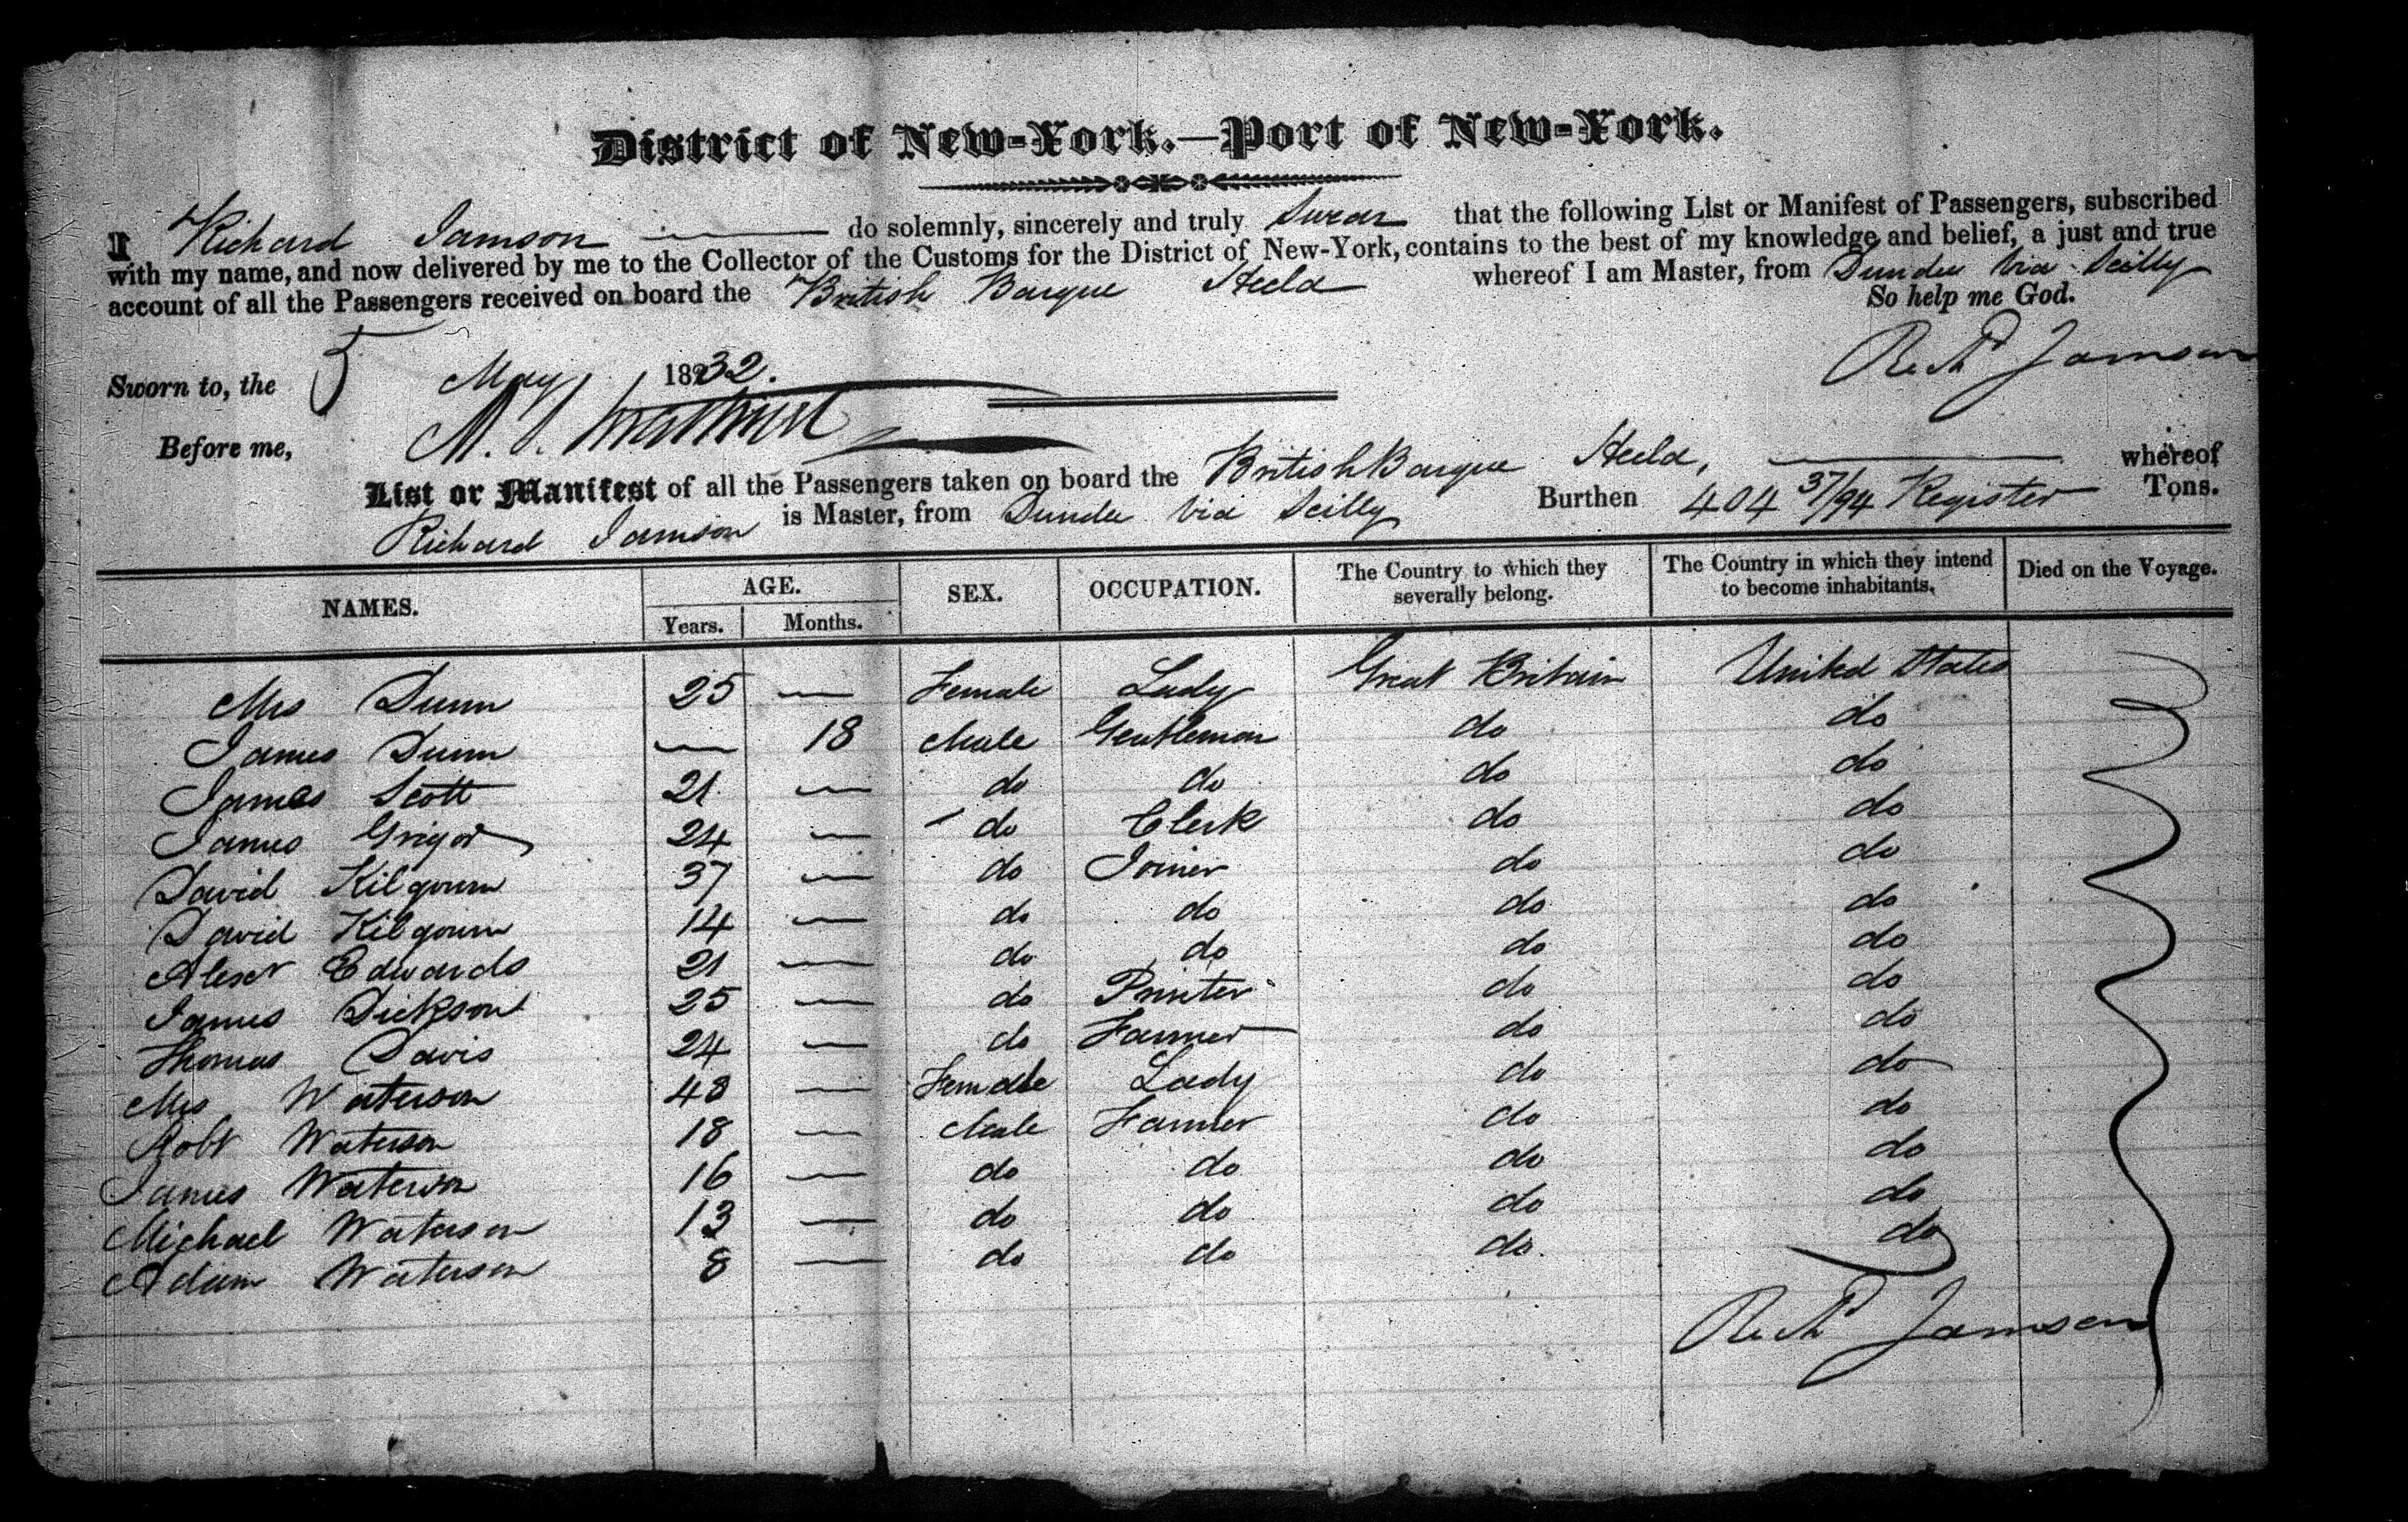 District of New-York.—Port of New-York.
I Richard Jamson do solemnly, sincerely and truly Swear that the following List or Manifest of Passengers, subscribed
with my name, and now delivered by me to the Collector of the Customs for the District of New-York, contains to the best of my knowledge and belief, a just and true
account of all the Passengers received on board the British Barque Hecla whereof I am Master, from Dundee via Scilly
So help me God.
Sworn to, the 5 May 1832. Richd Jamson
Before me,
List or Manifest of all the Passengers taken on board the British Barque Hecla, whereof
Richard Jamson is Master, from Dundee via Scilly Burthen 404 37/94 Register Tons.
NAMES. AGE. SEX. OCCUPATION. The Country to which they severally belong. The Country in which they intend to become inhabitants. Died on the Voyage.
Years. Months.
Mrs Dunn 25 — Female Lady Great Britain United States
James Dunn — 18 Male Gentleman do do
James Scott 21 — do do do do
James Grigor 24 — do Clerk do do
David Kilgour 37 — do Joiner do do
David Kilgour 14 — do do do do
Alexr Edwards 21 — do do do do
James Dickson 25 — do Printer do do
Thomas Davis 24 — do Farmer do do
Mrs Waterson 48 — Female Lady do do
Robt Waterson 18 — Male Farmer do do
James Waterson 16 — do do do do
Michael Waterson 13 — do do do do
Adam Waterson 8 — do do do do
Richd Jamson